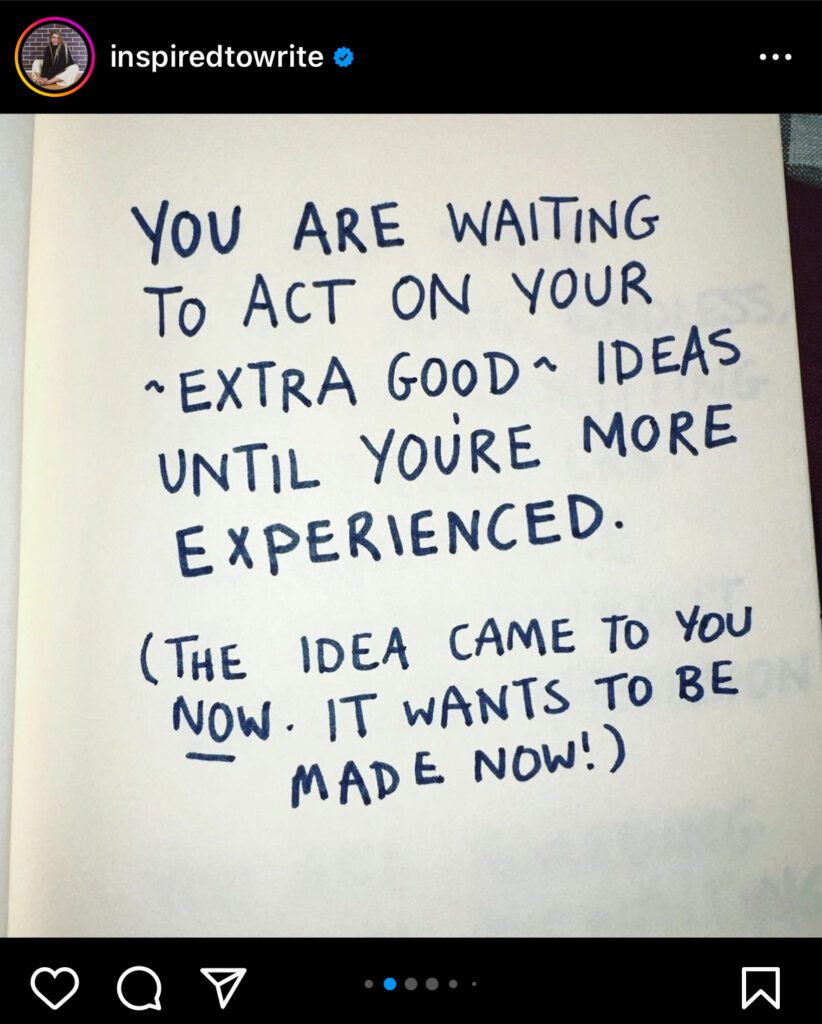 inspiredtowrite
YOU ARE WAITING
TO ACT ON YOUR
~EXTRA GOOD~ IDEAS
UNTIL YOU'RE MORE
EXPERIENCED.
(THE IDEA CAME TO YOU
NOW. IT WANTS TO BE
MADE NOW!)